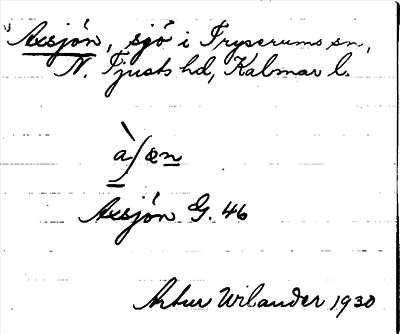 Axsjön, sjö i Tryserums sn,
N. Tjusts hd, Kalmar l.
à/œn
Axsjön G. 46
Artur Wilander 1930